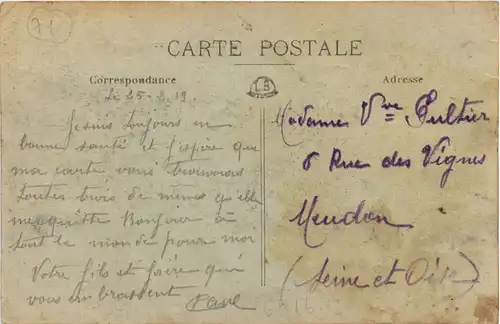 71
CARTE POSTALE
Correspondance
Adresse
LB
Le 25-8-19
Je suis toujours en
bonne santé et j'espère que
ma carte vous trouverons
toutes trois de même qu'elle
me quitte Bonjour à
tout le monde pour moi
Votre fils et frère qui
vous embrassent
Madame Vve
6 Rue des Vignes
Meudon
(Seine et Oise)